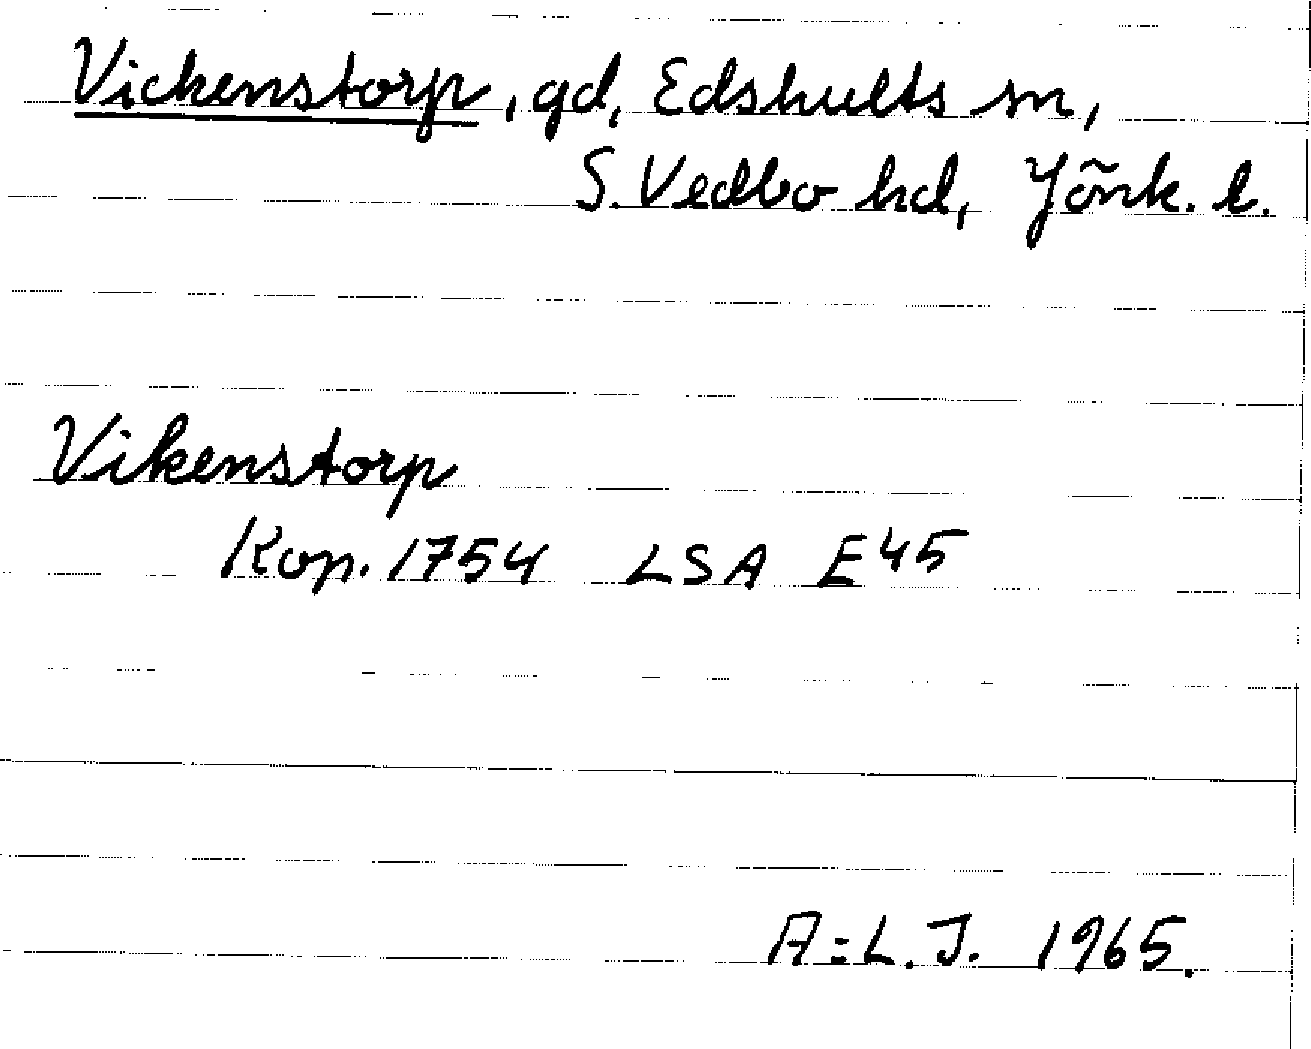 Vickenstorp, gd, Edshults sn,
S. Vedbo hd, Jönk. l.
Vikenstorp
Kop. 1754 LSA E45
A=L.J. 1965.